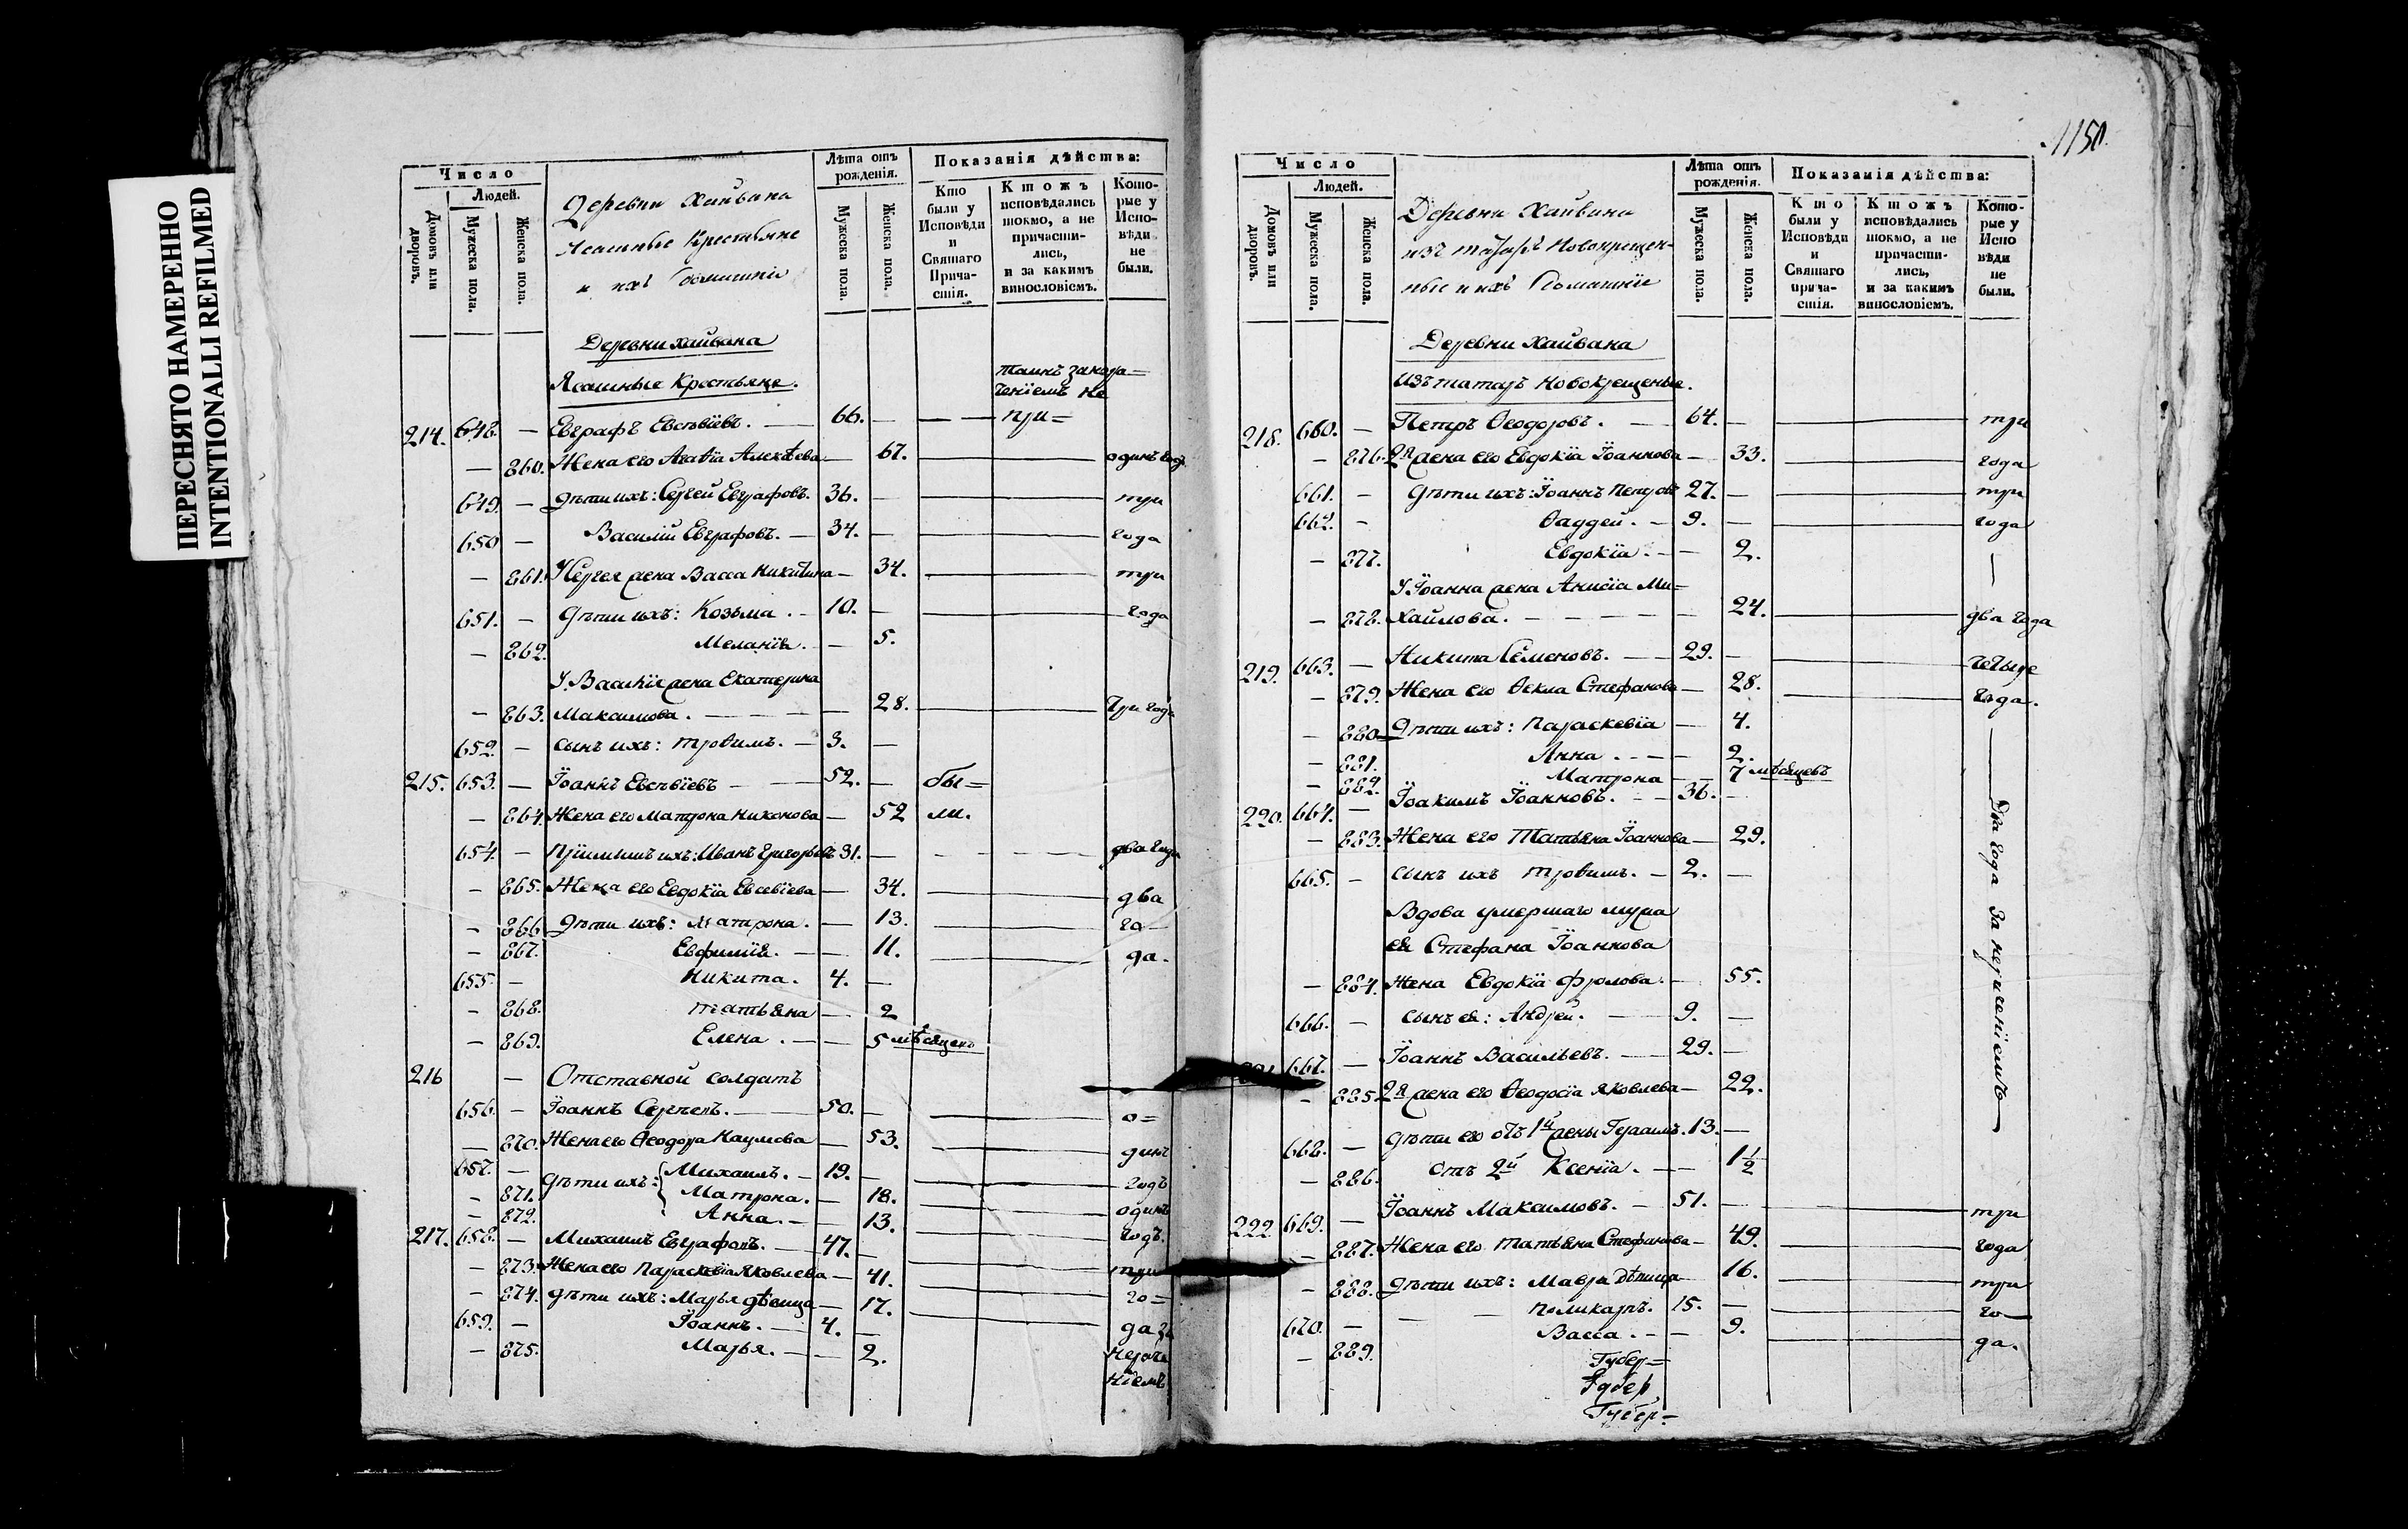 ПЕРЕСНЯТО НАМЕРЕННО
INTENTIONALLI REFILMED
Число
Людей.
Домовъ или дворовъ.
Мужеска пола.
Женска пола.
Деревни Хайвана
Ясашные Крестьяне
и ихъ домашніе
Лѣта отъ рожденія.
Мужеска пола.
Женска пола.
Показанія дѣйства:
Кто были у Исповѣди и Святаго Прича-стія.
Ктожъ исповѣдались токмо, а не причасти-лись, и за какимъ винословіемъ.
Кото-рые у Испо-вѣди не были.
Деревни Хайвана
Ясашные Крестьяне.
214. 648. — Евграфъ Евсѣвіевъ. — 66. — — — при=
— 860. Жена его Агаѳіа Алекѣева — 67. — одинъ годъ
649. — Дѣти ихъ: Сергей Евграфовъ. 36. — три
650 — Василій Евграфовъ. — 34. — года
— 861. У Сергея жена Васса Никитина — 34. — три
651. — Дѣти ихъ: Козьма. — 10. — года
— 862. Меланія. — 5.
У Василія жена Екатерина
— 863. Максимова. — 28. — Три года
652. — сынъ ихъ: Трофимъ. — 3. —
215. 653. — Іоаннъ Евсѣвіевъ — 52. — бы=
— 864. Жена его Матрона Никонова — 52 ли.
654. — Пріимышъ ихъ: Иванъ Григорьевъ 31. — два года
— 865. Жена его Евдокіа Евсевіева — 34. — два
— 866 Дѣти ихъ: Матрона. — 13. — го—
— 867. Евфимія. — 11. — да.
655. — Никита. 4. —
— 868. Татьяна — 2
— 869. Елена. — 5 мѣсяцевъ
216 — Отставной солдатъ
656. — Іоаннъ Сергеевъ. — 50. — о=
— 870. Жена его Ѳеодора Наумова — 53. — динъ
657. — Дѣти ихъ: Михаилъ. — 19. — годъ
— 871. Матрона. — 18. — одинъ
— 872. Анна. — 13. — годъ.
217. 658. — Михаилъ Евграфовъ. — 47. — три
— 873. Жена его Параскевіа Яковлева — 41. — го=
— 874. Дѣти ихъ: Марья дѣвица — 17. — да за
659. — Іоаннъ. — 4. — нераче
— 875. Марья. — 2. ніемъ
1150.
Число
Людей.
Домовъ или дворовъ.
Мужеска пола.
Женска пола.
Деревни Хайвана
изъ татаръ Новокрещен-
ные и ихъ Домашніе
Лѣта отъ рожденія.
Мужеска пола.
Женска пола.
Показанія дѣйства:
Кто были у Исповѣди и Святаго прича-стія.
Ктожъ исповѣдались токмо, а не причасти-лись, и за какимъ винословіемъ.
Кото-рые у Испо вѣди не были.
Деревни Хайвана
Изъ татаръ Новокрещеные.
218. 660. — Петръ Ѳеодоровъ. — 64. — три
— 876. 2я жена его Евдокіа Іоаннова — 33. — года
661. — Дѣти ихъ: Іоаннъ Петровъ 27. — три
662. — Ѳаддей. — 9. — года
— 877. Евдокіа. — 2. —
У Іоанна жена Анисіа Ми=
— 878. хайлова. — 24. — два года
219. 663. — Никита Семеновъ. — 29. — четыре
— 879. Жена его Ѳекла Стефанова — 28. — года.
— 880 Дѣти ихъ: Параскевіа — 4.
— 881. Анна. — 2.
— 882. Матрона — 7 мѣсяцевъ
220. 664. — Іоакимъ Іоанновъ. — 36. —
— 883. Жена его Татьяна Іоаннова — 29.
665. — сынъ ихъ Трофимъ. — 2. —
Вдова умершаго мужа
ея Стефана Іоаннова
— 884. Жена Евдокіа Фролова. — 55.
666. — Сынъ ея: Андрей. — 9. —
667. — Іоаннъ Васильевъ. — 29. —
— 885. 2я жена его Ѳеодосіа Яковлева — 22.
668. — Дѣти его отъ 1й жены Герасимъ. 13. —
— 886. Отъ 2й Ксеніа. — 1 1/2
Два года за нераченіемъ
222 669. — Іоаннъ Максимовъ. — 51. — три
— 887. Жена его Татьяна Стефанова — 49. — года
— 888. Дѣти ихъ: Мавра дѣвица — 16. — три
670. — Поликарпъ. 15. — го—
— 889. Васса. — 9. — да.
Губер=
Губер
Губер=